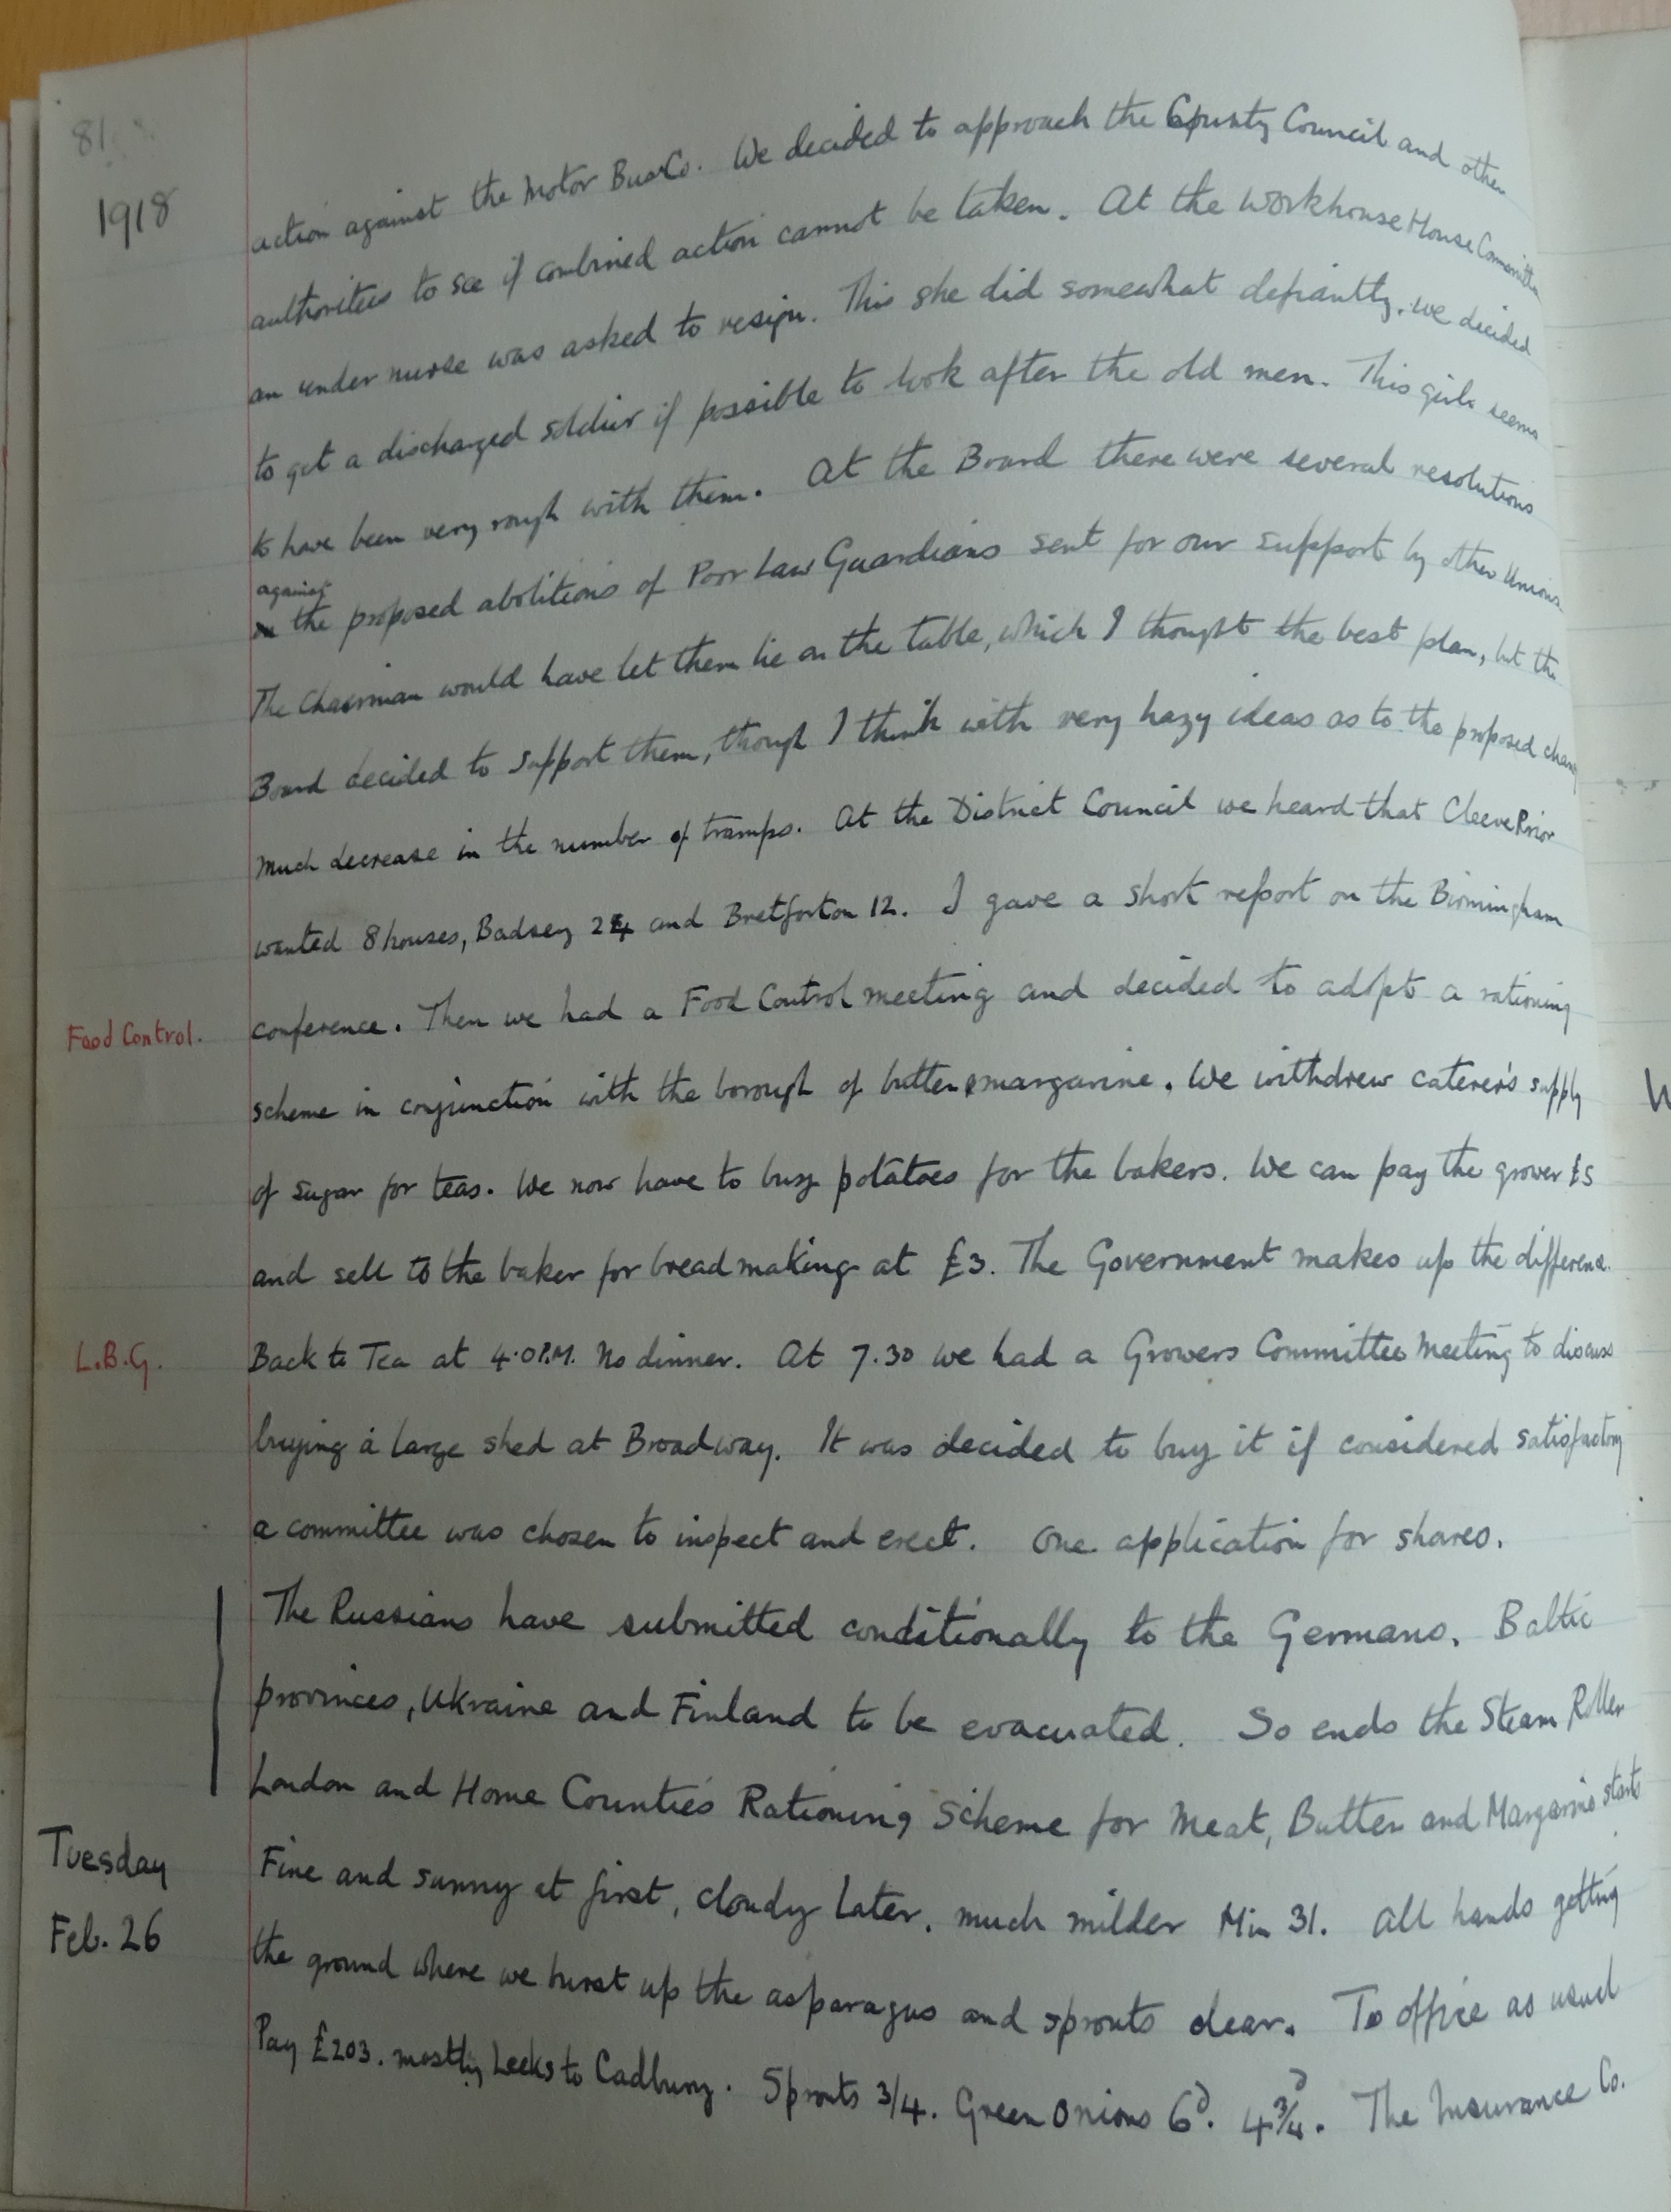 81
1918
action against the Motor Bus Co. We decided to approach the County Council and other
authorities to see if combined action cannot be taken. At the Workhouse House Committee
an under nurse was asked to resign. This she did somewhat defiantly. We decided
to get a discharged soldier if possible to look after the old men. This girl seems
to have been very rough with them. At the Board there were several resolutions
against
the proposed abolitions of Poor Law Guardians sent for our support by other Unions.
The Chairman would have let them lie on the table, which I thought the best plan, but the
Board decided to support them, though I think with very hazy ideas as to the proposed change
Much decrease in the number of tramps. At the District Council we heard that Cleeve Prior
wanted 8 houses, Badsey 24 and Bretforton 12. I gave a short report on the Birmingham
Food Control. conference. Then we had a Food Control meeting and decided to adopt a rationing
scheme in conjunction with the borough of butter & margarine. We withdrew caterer's supply
of sugar for teas. We now have to buy potatoes for the bakers. We can pay the grower £5
and sell to the baker for bread making at £3. The Government makes up the difference.
L.B.G. Back to Tea at 4.0 P.M. No dinner. At 7.30 we had a Growers Committee Meeting to discuss
buying a large shed at Broadway. It was decided to buy it if considered satisfactory
a committee was chosen to inspect and erect. One application for shares.
The Russians have submitted conditionally to the Germans. Baltic
provinces, Ukraine and Finland to be evacuated. So ends the Steam Roller
London and Home Counties Rationing Scheme for Meat, Butter and Margarine starts
Tuesday Fine and sunny at first, cloudy later, much milder Min 31. All hands getting
Feb. 26 the ground where we burst up the asparagus and sprouts clear. To office as usual
Pay £203. mostly Leeks to Cadbury. Sprouts 3/4. Green Onions 6d. 4¾d. The Insurance Co.